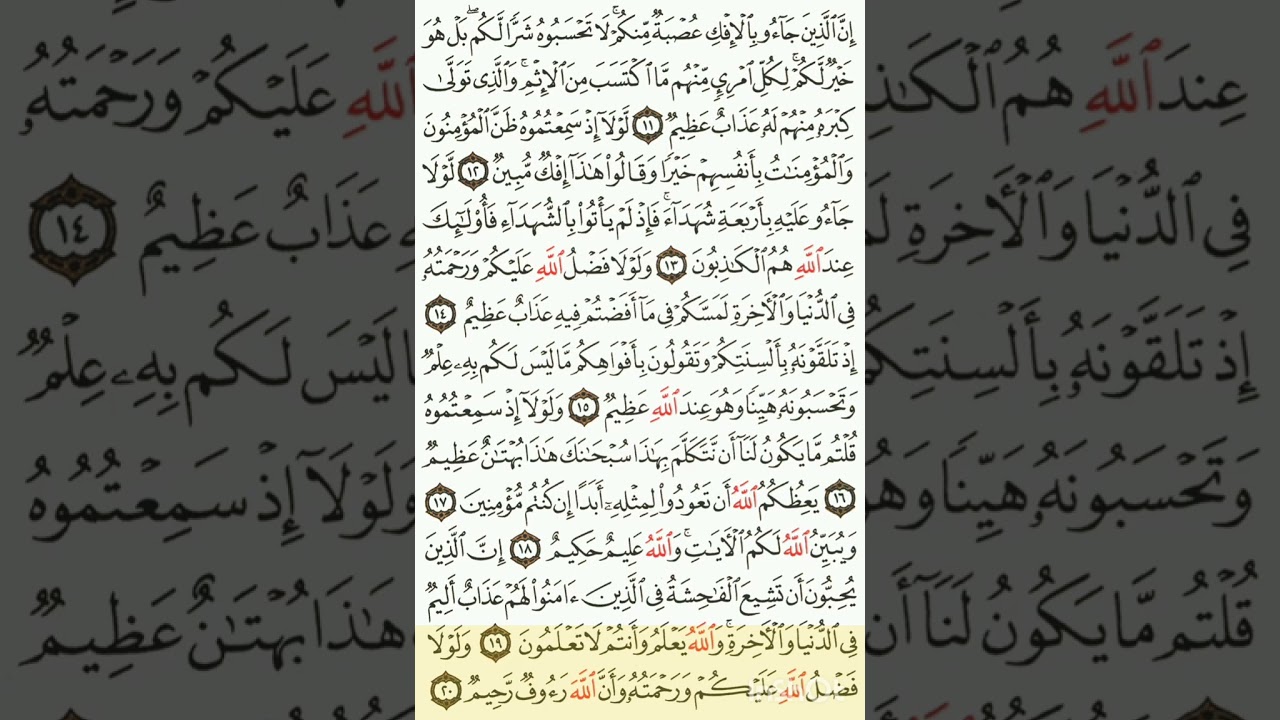 إِنَّ ٱلَّذِينَ جَآءُو بِٱلۡإِفۡكِ عُصۡبَةٞ مِّنكُمۡۚ لَا تَحۡسَبُوهُ شَرّٗا لَّكُمۖ بَلۡ هُوَ
خَيۡرٞ لَّكُمۡۚ لِكُلِّ ٱمۡرِيٕٖ مِّنۡهُم مَّا ٱكۡتَسَبَ مِنَ ٱلۡإِثۡمِۚ وَٱلَّذِي تَوَلَّىٰ
كِبۡرَهُۥ مِنۡهُمۡ لَهُۥ عَذَابٌ عَظِيمٞ ١١ لَّوۡلَآ إِذۡ سَمِعۡتُمُوهُ ظَنَّ ٱلۡمُؤۡمِنُونَ
وَٱلۡمُؤۡمِنَٰتُ بِأَنفُسِهِمۡ خَيۡرٗا وَقَالُواْ هَٰذَآ إِفۡكٞ مُّبِينٞ ١٢ لَّوۡلَا
جَآءُو عَلَيۡهِ بِأَرۡبَعَةِ شُهَدَآءَۚ فَإِذۡ لَمۡ يَأۡتُواْ بِٱلشُّهَدَآءِ فَأُوْلَٰٓئِكَ
عِندَ ٱللَّهِ هُمُ ٱلۡكَٰذِبُونَ ١٣ وَلَوۡلَا فَضۡلُ ٱللَّهِ عَلَيۡكُمۡ وَرَحۡمَتُهُۥ
فِي ٱلدُّنۡيَا وَٱلۡأٓخِرَةِ لَمَسَّكُمۡ فِي مَآ أَفَضۡتُمۡ فِيهِ عَذَابٌ عَظِيمٌ ١٤
إِذۡ تَلَقَّوۡنَهُۥ بِأَلۡسِنَتِكُمۡ وَتَقُولُونَ بِأَفۡوَاهِكُم مَّا لَيۡسَ لَكُم بِهِۦ عِلۡمٞ
وَتَحۡسَبُونَهُۥ هَيِّنٗا وَهُوَ عِندَ ٱللَّهِ عَظِيمٞ ١٥ وَلَوۡلَآ إِذۡ سَمِعۡتُمُوهُ
قُلۡتُم مَّا يَكُونُ لَنَآ أَن نَّتَكَلَّمَ بِهَٰذَا سُبۡحَٰنَكَ هَٰذَا بُهۡتَٰنٌ عَظِيمٞ
١٦ يَعِظُكُمُ ٱللَّهُ أَن تَعُودُواْ لِمِثۡلِهِۦٓ أَبَدًا إِن كُنتُم مُّؤۡمِنِينَ ١٧
وَيُبَيِّنُ ٱللَّهُ لَكُمُ ٱلۡأٓيَٰتِۚ وَٱللَّهُ عَلِيمٌ حَكِيمٌ ١٨ إِنَّ ٱلَّذِينَ
يُحِبُّونَ أَن تَشِيعَ ٱلۡفَٰحِشَةُ فِي ٱلَّذِينَ ءَامَنُواْ لَهُمۡ عَذَابٌ أَلِيمٞ
فِي ٱلدُّنۡيَا وَٱلۡأٓخِرَةِۚ وَٱللَّهُ يَعۡلَمُ وَأَنتُمۡ لَا تَعۡلَمُونَ ١٩ وَلَوۡلَا
فَضۡلُ ٱللَّهِ عَلَيۡكُمۡ وَرَحۡمَتُهُۥ وَأَنَّ ٱللَّهَ رَءُوفٞ رَّحِيمٞ ٢٠